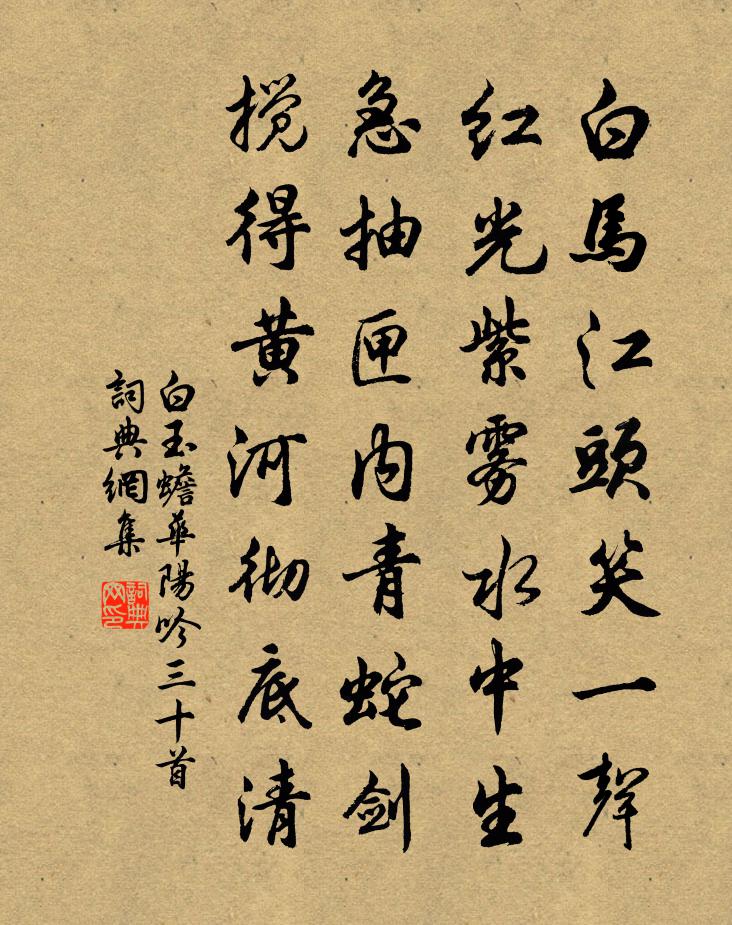 白馬江頭笑一聲
紅光紫雾水中生
急抽匣内青蛇劍
攪得黄河徹底清
白玉蟾華陽吟三十首
詞典網集
詞典
网印